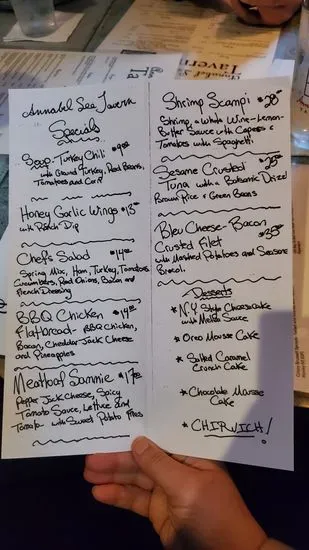 Annabel Lee Tavern
Specials
Soup - Turkey Chili $9.00
with Ground Turkey, Red Beans,
Tomatoes and Corn
Honey Garlic Wings $15.00
with Ranch Dip
Chef's Salad $14.00
Spring Mix, Ham, Turkey, Tomatoes,
Cucumbers, Red Onions, Bacon and
French Dressing
B.B.Q Chicken $14.00
Flatbread - BBQ Chicken,
Bacon, Cheddar Jack Cheese
and Pineapples
Meatloaf Sammie $17.00
Pepper Jack Cheese, Spicy
Tomato Sauce, Lettuce and
Tomato with Sweet Potato Fries
Shrimp Scampi $28.00
Shrimp, a White Wine-Lemon-
Butter Sauce with Capers &
Tomatoes with Spaghetti
Sesame Crusted
Tuna with a Balsamic Drizzel
Brown Rice & Green Beans
Bleu Cheese - Bacon
Crusted Filet
with Mashed Potatoes and Sesame
Brocoli.
Desserts
* N.Y Style Cheesecake
with Melba Sauce
* Oreo Mousse Cake
* Salted Caramel
Crunch Cake
* Chocolate Mousse
Cake
* CHIRWICH!